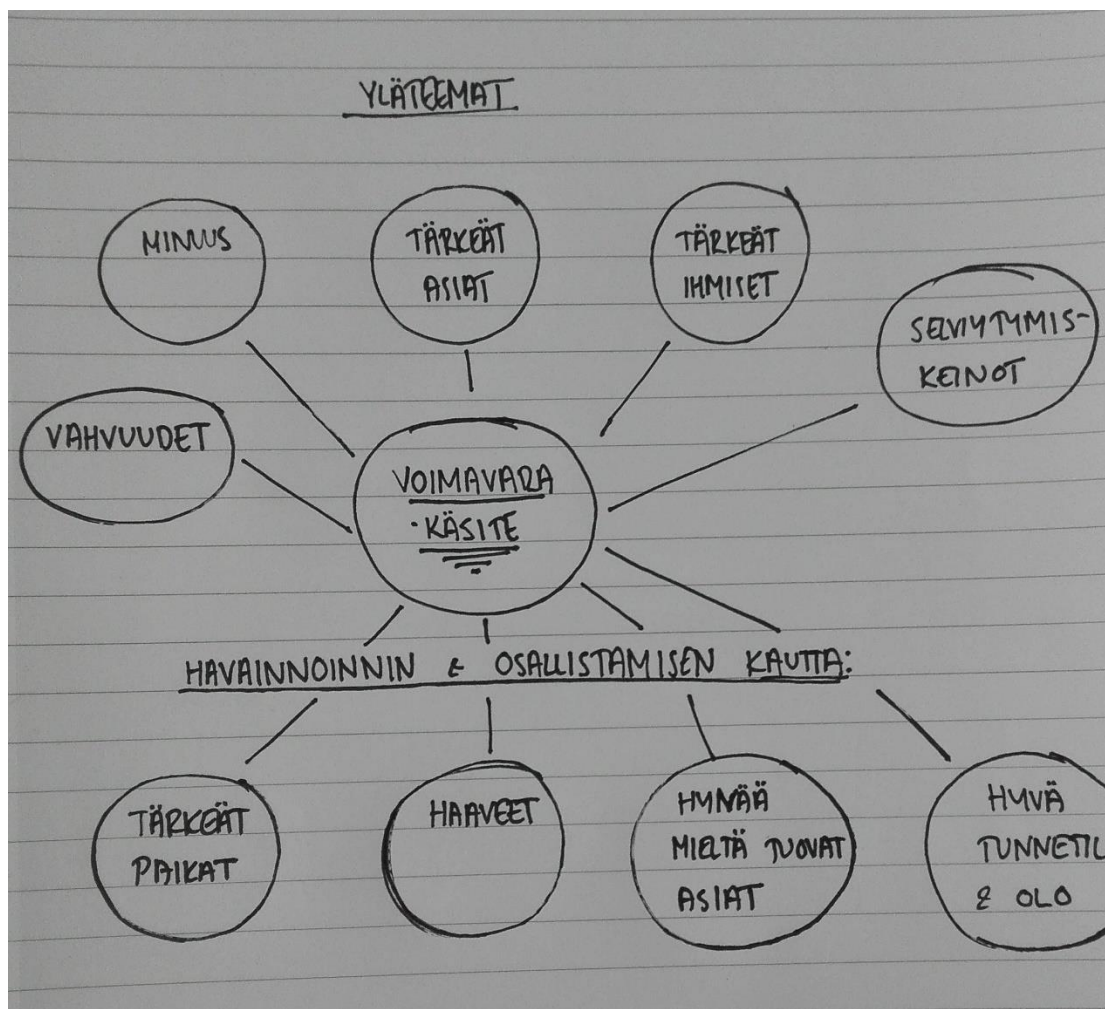 YLÄTEEMAT
MINUUS
TÄRKEÄT
ASIAT
TÄRKEÄT
IHMISET
SELVIYTYMIS-
KEINOT
VAHVUUDET
VOIMAVARA
·KÄSITE
HAVAINNOINNIN & OSALLISTAMISEN KAUTTA:
TÄRKEÄT
PAIKAT
HAAVEET
HYVÄÄ
MIELTÄ TUOVAT
ASIAT
HYVÄ
TUNNETIL
& OLO